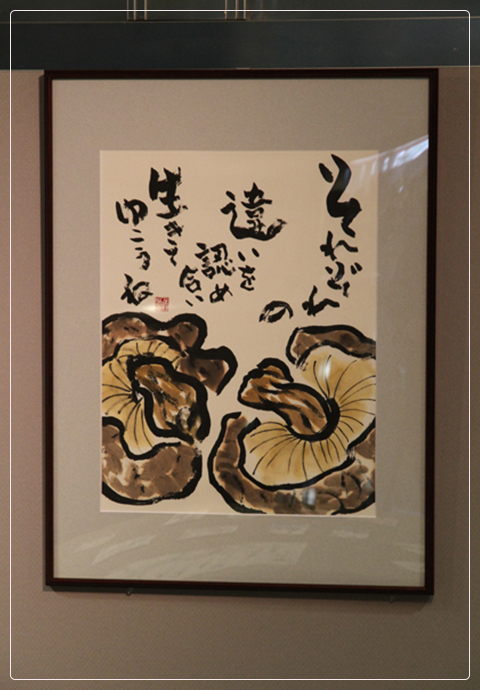 それぞれ
の
違いを
認め
合い
生きて
ゆこうね